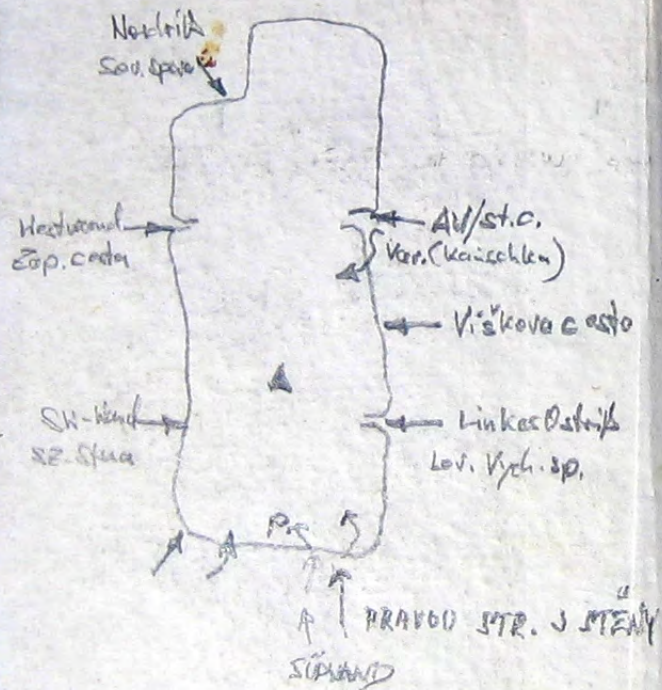 Nordriß
Sev. spára
Westwand
Záp. cesta
AW/st. c.
Var. (Kauschka)
Víškova cesta
SW-Wand
SZ-stěna
Linker Ostriß
Lev. Vých. sp.
P
PRAVOU STR. J STĚNY
SÜDWAND